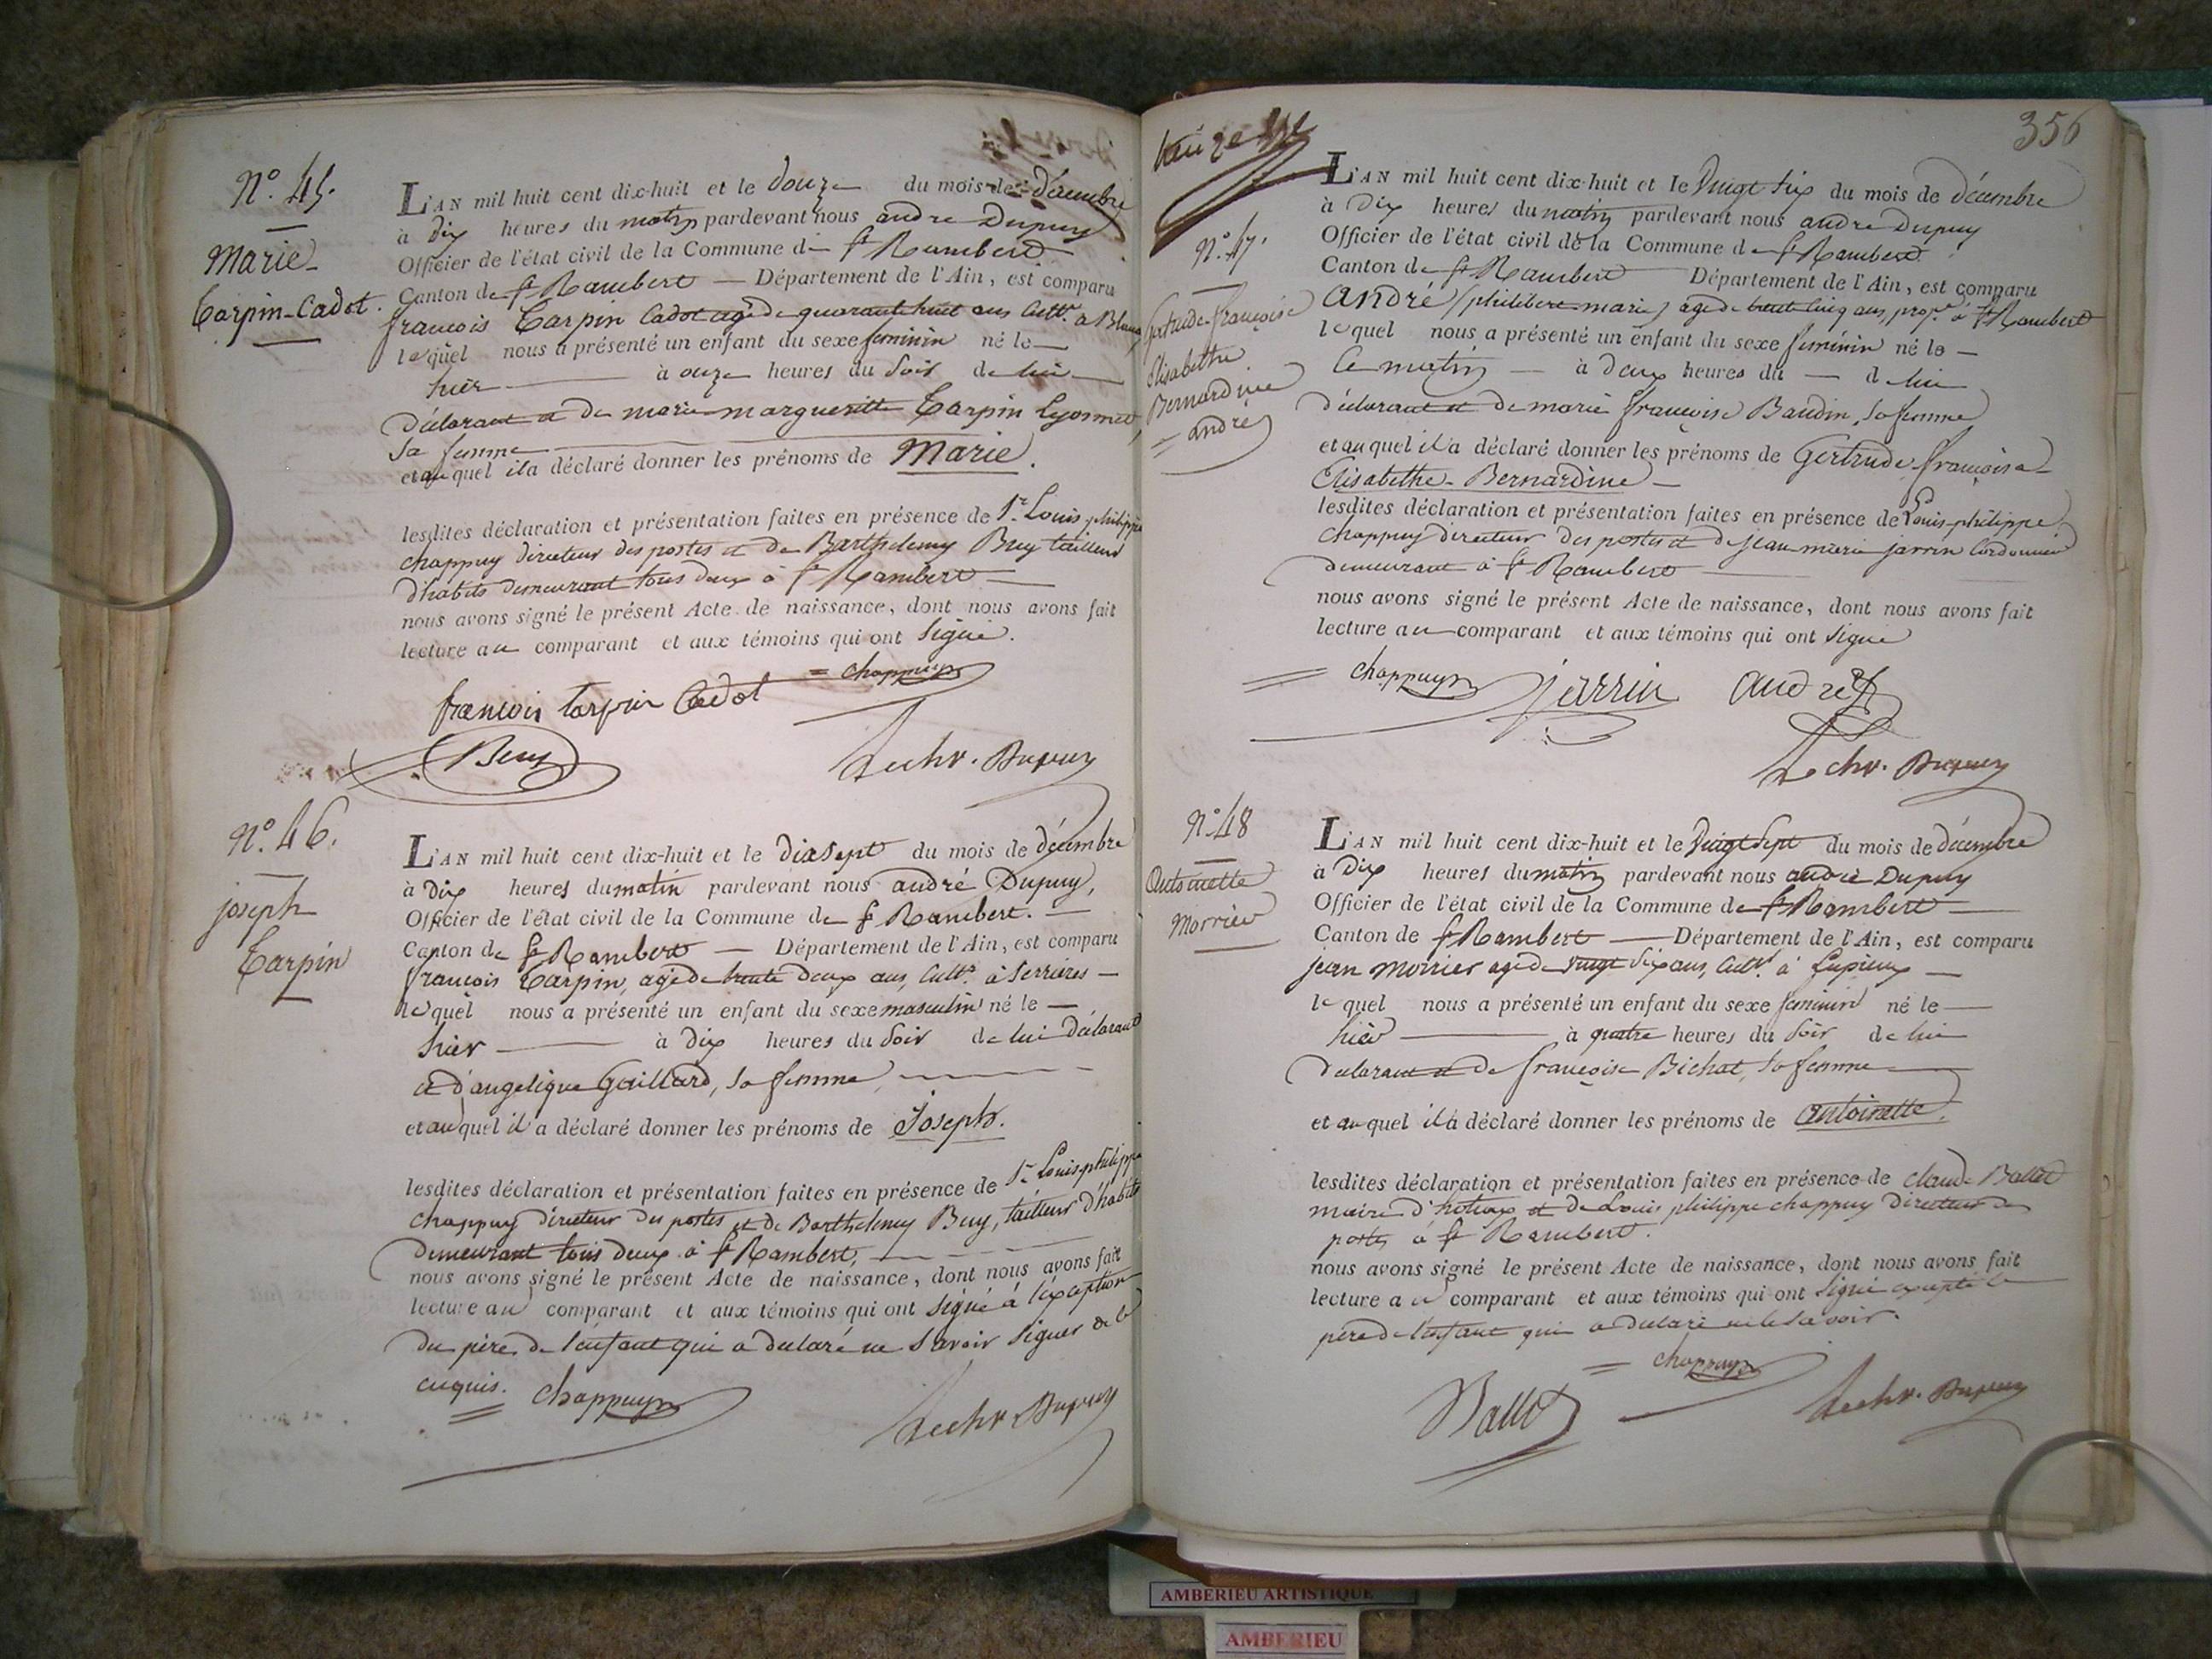 N.º 45.
Marie
Carpin-Cadot.
L'AN mil huit cent dix-huit et le douze du mois de décembre
à dix heures du matin pardevant nous andre Dupuy
Officier de l'état civil de la Commune de St Rambert
Canton de St Rambert — Département de l'Ain, est comparu
francois Carpin Cadot agé de quarante huit ans Cultr. a
lequel nous a présenté un enfant du sexe feminin né le —
hier — à onze heures du soir de lui —
déclarant et de marie margueritte Carpin Lyonnet,
sa femme
et auquel il a déclaré donner les prénoms de Marie.
lesdites déclaration et présentation faites en présence de Sr. Louis philippe
chappuy directeur des postes et de Barthelemy Buy tailleur
d'habits demeurant tous deux à St Rambert —
nous avons signé le présent Acte de naissance, dont nous avons fait
lecture au comparant et aux témoins qui ont signé.
= chappuy
francois Carpin Cadot
Buy
Le chr. Dupuy
N.º 46.
joseph
Carpin
L'AN mil huit cent dix-huit et le dix sept du mois de décembre
à dix heures du matin pardevant nous andré Dupuy,
Officier de l'état civil de la Commune de St Rambert. —
Canton de St Rambert — Département de l'Ain, est comparu
francois Carpin, agé de trente deux ans, Cultr. à Serrières —
lequel nous a présenté un enfant du sexe masculin né le —
hier — à dix heures du soir de lui déclarant
et d'angelique Gaillard, sa femme,
et auquel il a déclaré donner les prénoms de Joseph.
lesdites déclaration et présentation faites en présence de Sr. Louis philippe
chappuy directeur des postes et de Barthelemy Buy, tailleur d'habits
demeurant tous deux à St Rambert,
nous avons signé le présent Acte de naissance, dont nous avons fait
lecture au comparant et aux témoins qui ont signé à l'exception
du père de l'enfant qui a declaré ne savoir signer de ce
enquis.
= chappuy
Le chr. Dupuy
356
N.º 47.
françoise
Elisabethe
Bernardine
= andré
L'AN mil huit cent dix-huit et le vingt six du mois de décembre
à dix heures du matin pardevant nous andre Dupuy
Officier de l'état civil de la Commune de St Rambert
Canton de St Rambert Département de l'Ain, est comparu
André (philibert marie) agé de trente cinq ans, propre. à St Rambert
lequel nous a présenté un enfant du sexe feminin né le —
Ce matin — à deux heures du — de lui
déclarant et de marie françoise Baudin, sa femme
et auquel il a déclaré donner les prénoms de Gertrude françoise
Elisabethe - Bernardine —
lesdites déclaration et présentation faites en présence de Louis-philippe
chappuy directeur des postes et de jean marie jarrin Cordonnier
demeurant à St Rambert
nous avons signé le présent Acte de naissance, dont nous avons fait
lecture au comparant et aux témoins qui ont signé
= chappuy jarrin andré
Le chr. Dupuy
N.º 48
Antoinette
Morrier
L'AN mil huit cent dix-huit et le vingt sept du mois de décembre
à dix heures du matin pardevant nous andré Dupuy
Officier de l'état civil de la Commune de St Rambert —
Canton de St Rambert — Département de l'Ain, est comparu
jean morrier agé de vingt six ans, Cultr. à Lupieux —
lequel nous a présenté un enfant du sexe feminin né le —
hier — à quatre heures du soir de lui
declarant et de françoise Bichat, sa femme
et auquel il a déclaré donner les prénoms de antoinette.
lesdites déclaration et présentation faites en présence de claude Ballet
maire d'hotiax et de Louis philippe chappuy directeur des
postes à St Rambert.
nous avons signé le présent Acte de naissance, dont nous avons fait
lecture au comparant et aux témoins qui ont signé excepté le
père de l'enfant qui a declaré ne le savoir.
= chappuy
Ballet
Le chr. Dupuy
AMBERIEU ARTISTIQUE
AMBERIEU